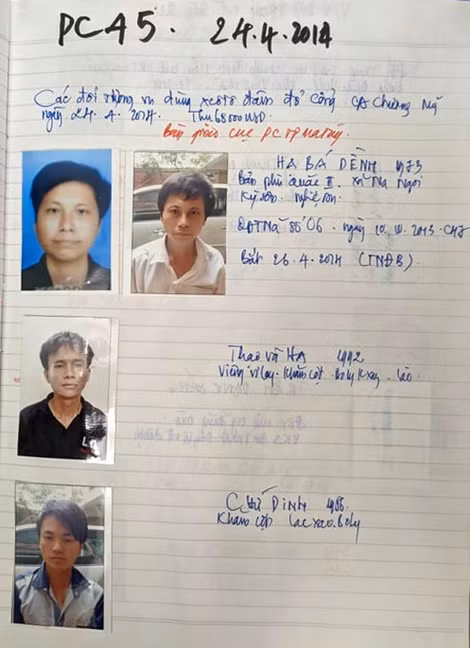 PC45. 24.4.2014
Các đối tượng vụ dùng xe ôtô đâm đổ cổng CA Chương Mỹ
ngày 24.4.2014. Thu 68000 USD.
Bàn giao cục PC ma túy.
HA BA DỀNH 1973
Bản phù quắc II. xã Na Ngoi
Kỳ Sơn. Nghệ An.
QĐTNã số 06. ngày 10.
Bắt 26.4.2014 (TNĐB).
Thao và HA 1992
Khăm cột. Bôlykxay. Lào
CHứ DINH
Khăm cột lacxao. Boly